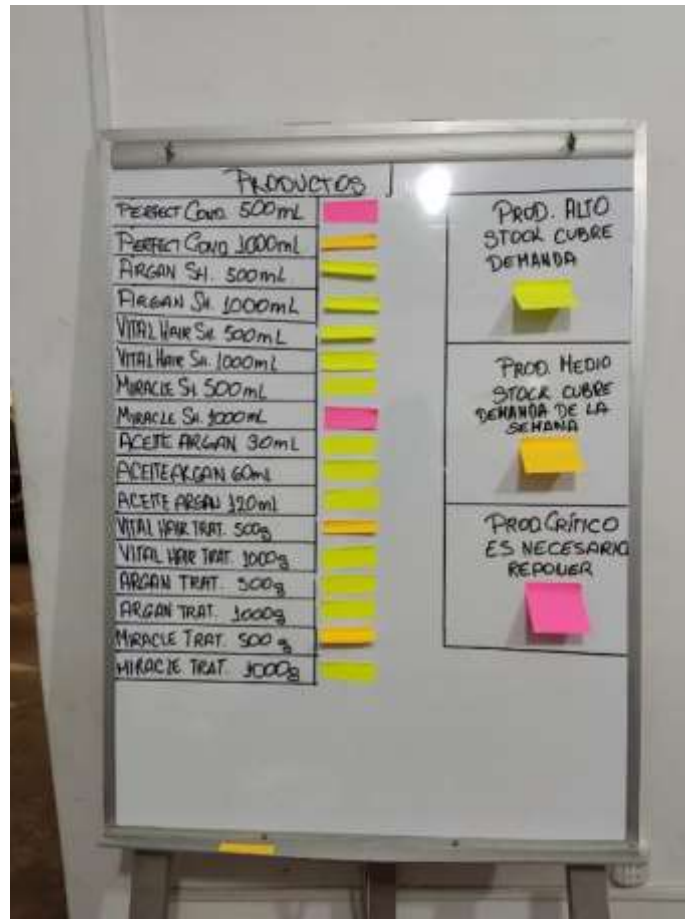 PRODUCTOS
PERFECT COND. 500mL
PERFECT COND 1000mL
ARGAN SH. 500mL
ARGAN SH. 1000mL
VITAL HAIR SH. 500mL
VITAL HAIR SH. 1000mL
MIRACLE SH. 500mL
MIRACLE SH. 1000mL
ACEITE ARGAN 30mL
ACEITE ARGAN 60mL
ACEITE ARGAN 120mL
VITAL HAIR TRAT. 500g
VITAL HAIR TRAT. 1000g
ARGAN TRAT. 500g
ARGAN TRAT. 1000g
MIRACLE TRAT. 500g
MIRACLE TRAT. 1000g
PROD. ALTO
STOCK CUBRE
DEMANDA
PROD. MEDIO
STOCK CUBRE
DEMANDA DE LA
SEMANA
PROD. CRÍTICO
ES NECESARIO
REPONER